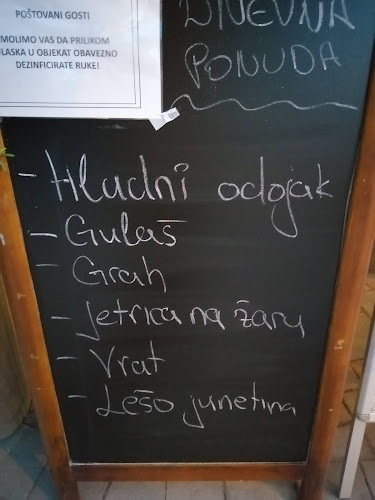 POŠTOVANI GOSTI
MOLIMO VAS DA PRILIKOM
ULASKA U OBJEKAT OBAVEZNO
DEZINFICIRATE RUKE!
DNEVNA
PONUDA
- Hladni odojak
- Gulaš
- Grah
- Jetrica na žaru
- Vrat
- Lešo junetina